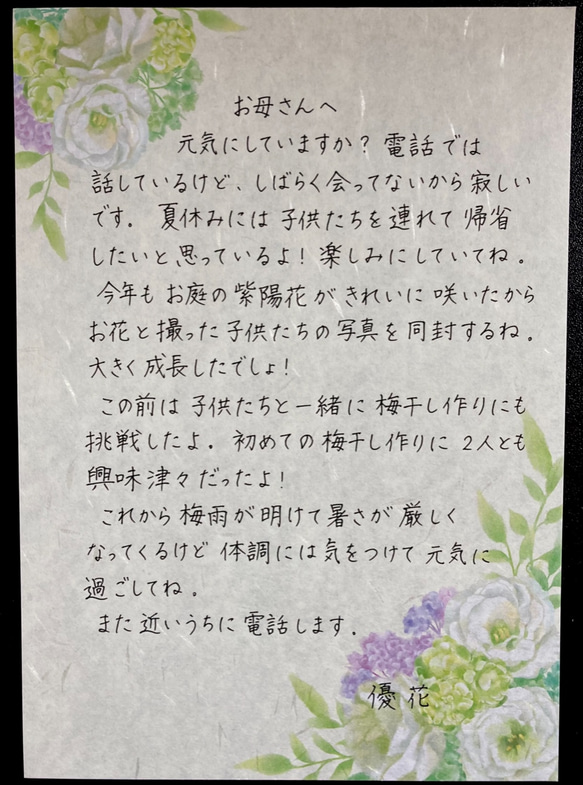 お母さんへ
元気にしていますか？電話では
話しているけど、しばらく会ってないから寂しい
です。夏休みには子供たちを連れて帰省
したいと思っているよ！楽しみにしていてね。
今年もお庭の紫陽花がきれいに咲いたから
お花と撮った子供たちの写真を同封するね。
大きく成長したでしょ！
この前は子供たちと一緒に梅干し作りにも
挑戦したよ。初めての梅干し作りに2人とも
興味津々だったよ！
これから梅雨が明けて暑さが厳しく
なってくるけど体調には気をつけて元気に
過ごしてね。
また近いうちに電話します。
優花